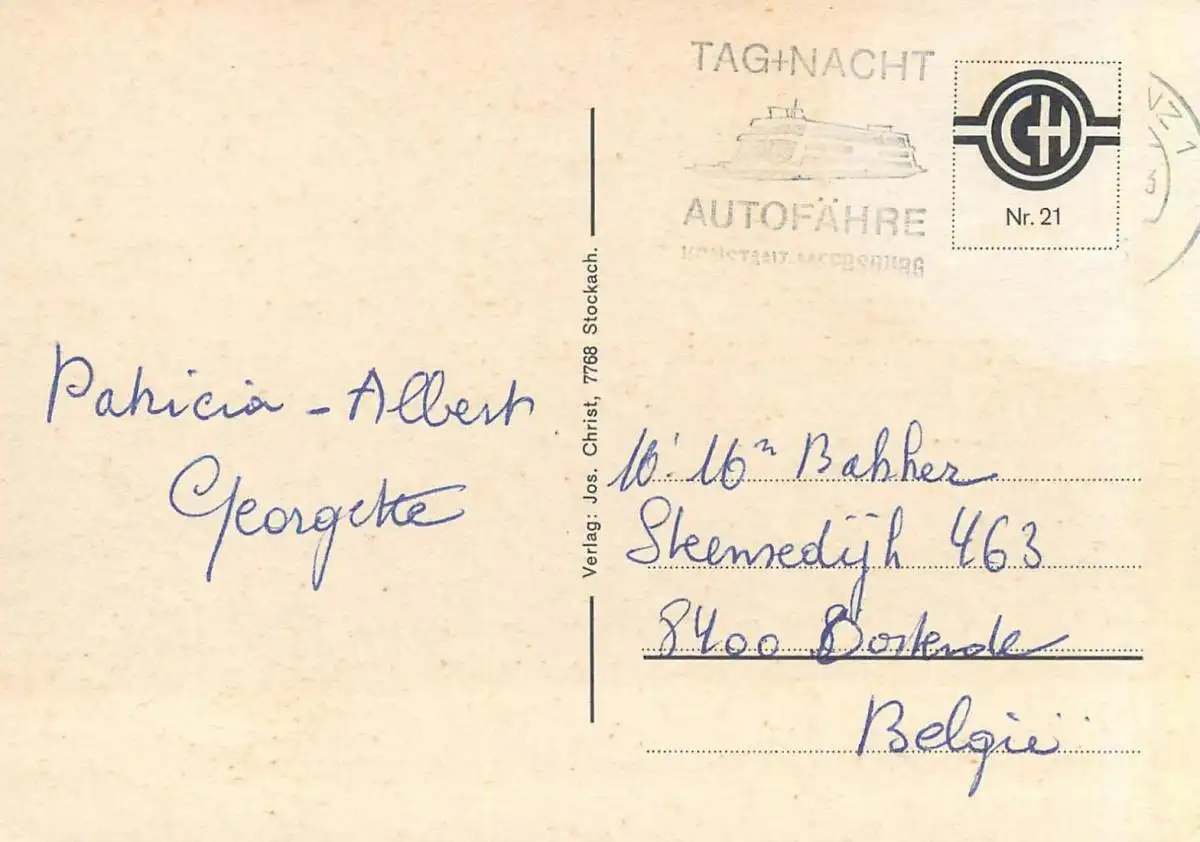 TAG+NACHT
AUTOFÄHRE
KONSTANZ-MEERSBURG
NZ 1
3
CH
Nr. 21
Verlag: Jos. Christ, 7768 Stockach.
Patricia - Albert
Georgette
Bakker
Steensedijk 463
8400 Oostende
België